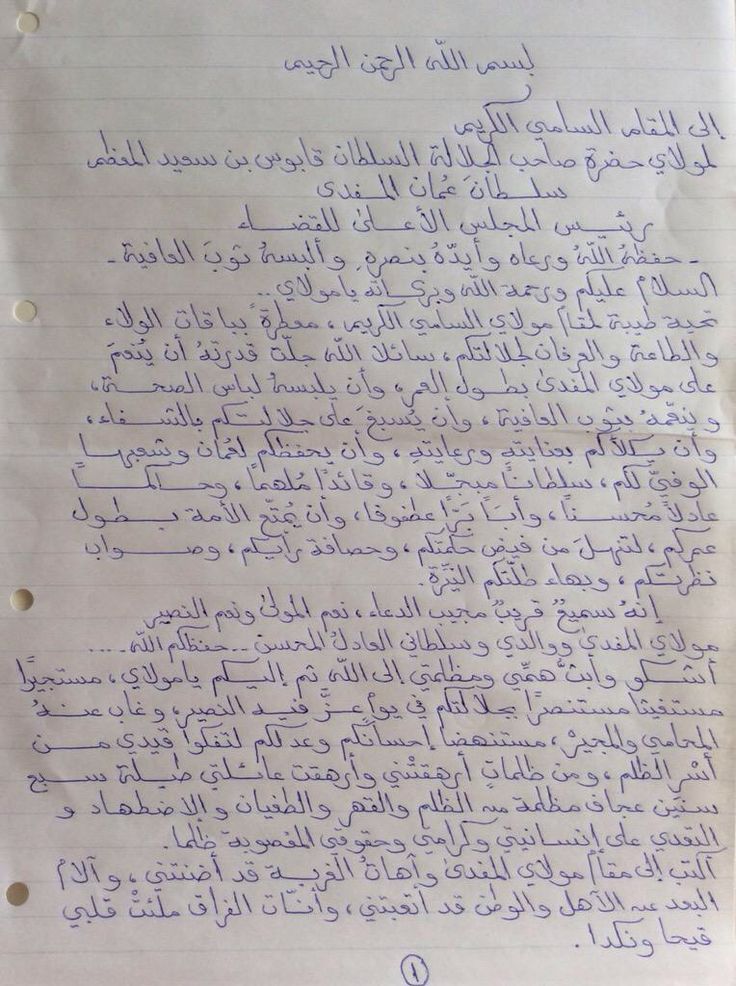 بسم الله الرحمن الرحيم
إلى المقام السامي الكريم
لمولاي حضرة صاحب الجلالة السلطان قابوس بن سعيد المعظم
سلطانَ عُمان المفدى
رئيس المجلس الأعلى للقضاء
- حفظهُ اللّهُ ورعاه وأيدّهُ بنصرهِ وألبسهُ ثوبَ العافية -
السلامُ عليكم ورحمة الله وبركاته يامولاي..
تحية طيبة لمقامِ مولاي السامي الكريم، معطرةً بباقات الولاء
والطاعة والعرفان لجلالتكم، سائلا الله جلّت قدرتهُ أن يُنعمَ
على مولاي المفدى بطول العمر، وأن يلبسهُ لباس الصحة،
وينعّمهُ بثوب العافية، وأن يُسبغَ على جلالتكم بالشفاء،
وأن يكلأكم بعنايتهِ ورعايتهِ، وأن يحفظكم لعُمان وشعبها
الوفيّ لكم، سلطاناً مبجّلا، وقائدًا مُلهماً، وحاكماً
عادلاً مُحسناً، وأباً بَرًّا عطفوفا، وأن يُمتّع الأمة بطول
عمركم، لتنهلَ من فيض حكمتكم، وحصافة رأيكم، وصواب
نظرتكم، وبهاء طلّتكم النيّرة.
إنهُ سميعٌ قريبٌ مجيب الدعاء، نعم المولى ونعم النصير
مولاي المفدى ووالدي وسلطاني العادلُ المحسن.. حفظكم الله....
أشكو وأبثّ همّي ومظلمتي إلى الله ثم إليكم يامولاي، مستجيرًا
مستغيثا مستنصرًا بجلالتكم في يومٍ عزَّ فيه النصير، وغاب عنهُ
المحامي والمجيرْ، مستنهضا إحسانكم وعدلكم لتفكوا قيدي من
أسْر الظلم، ومن ظلماتٍ أرهقتْني وأرهقت عائلتي طيلة سبع
سنين عجاف مظلمة من الظلم والقهر والطغيان والإضطهاد و
التعدي على إنسانيتي وكرامتي وحقوقي المغصوبة ظلما.
أكتب إلى مقامِ مولاي المفدى وآهاتُ الغربة قد أضنتني، وآلامُ
البعد عن الأهل والوطن قد أتعبتني، وأنّات الفراق ملئتْ قلبي
قيحا ونكدا.
١